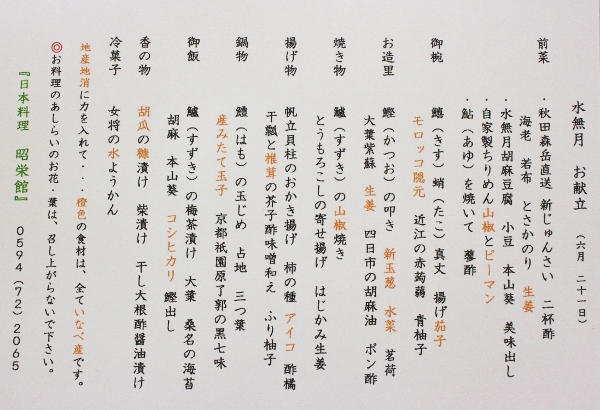 水無月 お献立 (六月 二十一日)
前菜 ・秋田森岳直送 新じゅんさい 二杯酢
海老 若布 とさかのり 生姜
・水無月胡麻豆腐 小豆 本山葵 美味出し
・自家製ちりめん山椒とピーマン
・鮎(あゆ)を焼いて 蓼酢
御椀 鱚(きす)蛸(たこ)真丈 揚げ茄子
モロッコ隠元 近江の赤蒟蒻 青柚子
お造里 鰹(かつお)の叩き 新玉葱 水菜 茗荷
大葉紫蘇 生姜 四日市の胡麻油 ポン酢
焼き物 鱸(すずき)の山椒焼き
とうもろこしの寄せ揚げ はじかみ生姜
揚げ物 帆立貝柱のおかき揚げ 柿の種 アイコ 酢橘
干瓢と椎茸の芥子酢味噌和え ふり柚子
鍋物 鱧(はも)の玉じめ 占地 三つ葉
産みたて玉子 京都祇園原了郭の黒七味
御飯 鱸(すずき)の梅茶漬け 大葉 桑名の海苔
胡麻 本山葵 コシヒカリ 鰹出し
香の物 胡瓜の糠漬け 柴漬け 干し大根酢醤油漬け
冷菓子 女将の水ようかん
地産地消に力を入れて・・・橙色の食材は、全ていなべ産です。
◎お料理のあしらいのお花・葉は、召し上がらないで下さい。
『日本料理 昭栄館』 0594(72)2065